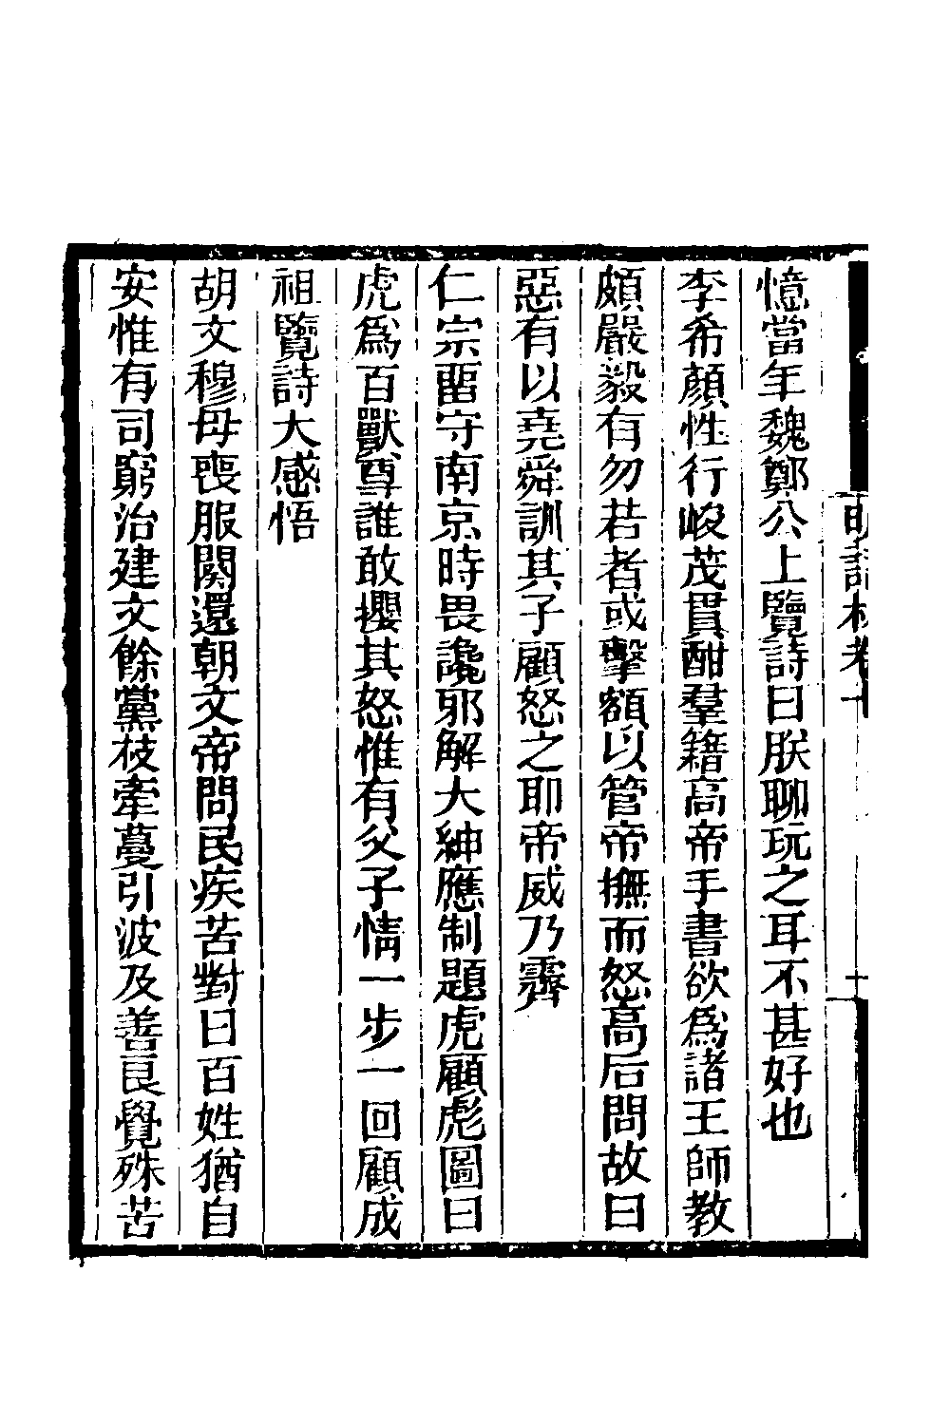 明語林卷十
十
憶當年魏鄭公上覽詩曰朕聊玩之耳不甚好也
李希顏性行峻茂貫酣羣籍高帝手書欲爲諸王師教
頗嚴毅有勿若者或擊額以管帝撫而怒高后問故曰
惡有以堯舜訓其子顧怒之耶帝威乃霽
仁宗畱守南京時畏讒邪解大紳應制題虎顧彪圖曰
虎爲百獸尊誰敢攖其怒惟有父子情一步一回顧成
祖覽詩大感悟
胡文穆母喪服闋還朝文帝問民疾苦對曰百姓猶自
安惟有司窮治建文餘黨枝牽蔓引波及善良覺殊苦